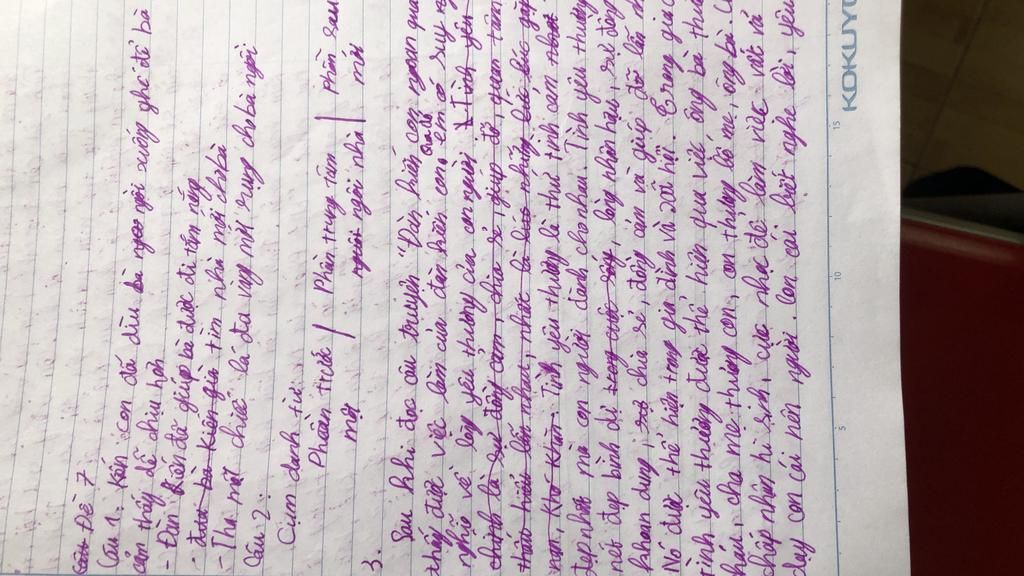 Đề 7
Câu 1: Kiến con đã dìu bà ngồi xuống ghế để bà
cảm thấy dễ chịu hơn
- Đàn kiến đã giúp bà được đi tắm nắng
- đưa bà Kiến già tìm nhà mới cho bà
- Tha một chiếc lá đa vàng mới rụng cho bà ngồi
Câu 2:
Cụm danh từ:
Phần trước / Phần trung tâm / Phần sau
một / ngôi nhà / mới
3.
Sau khi đọc câu truyện "Đàn kiến con ngoan quá
thấy được việc làm của đàn kiến con em có suy
nghĩ về lòng yêu thương của con người. Tình yêu
chính là sự đồng cảm, chia sẻ, giúp đỡ, quan tâm
thấu hiểu lẫn nhau, nhất là
nạn, Tình yêu thương là thứ tình cảm
đẹp nhất mà con người dành cho nhau. Tình yêu thương
nét đẹp bình dị lòng nhân hậu, sự đồng
khoan dung, chia sẻ, đồng cảm và giúp đỡ lẫn
Nó được thể hiện trong gia đình và xã hội. Trong gia
tình yêu thương được thể hiện qua việc ông bà thương
cháu, cha mẹ thương con, con thương bố mẹ, ông bà.
chấp nhận hi sinh, cực nhọc để làm việc vất vả
dạy con cái nên người. con cái biết nghe lời, yêu
KOKUYO
5
10
15